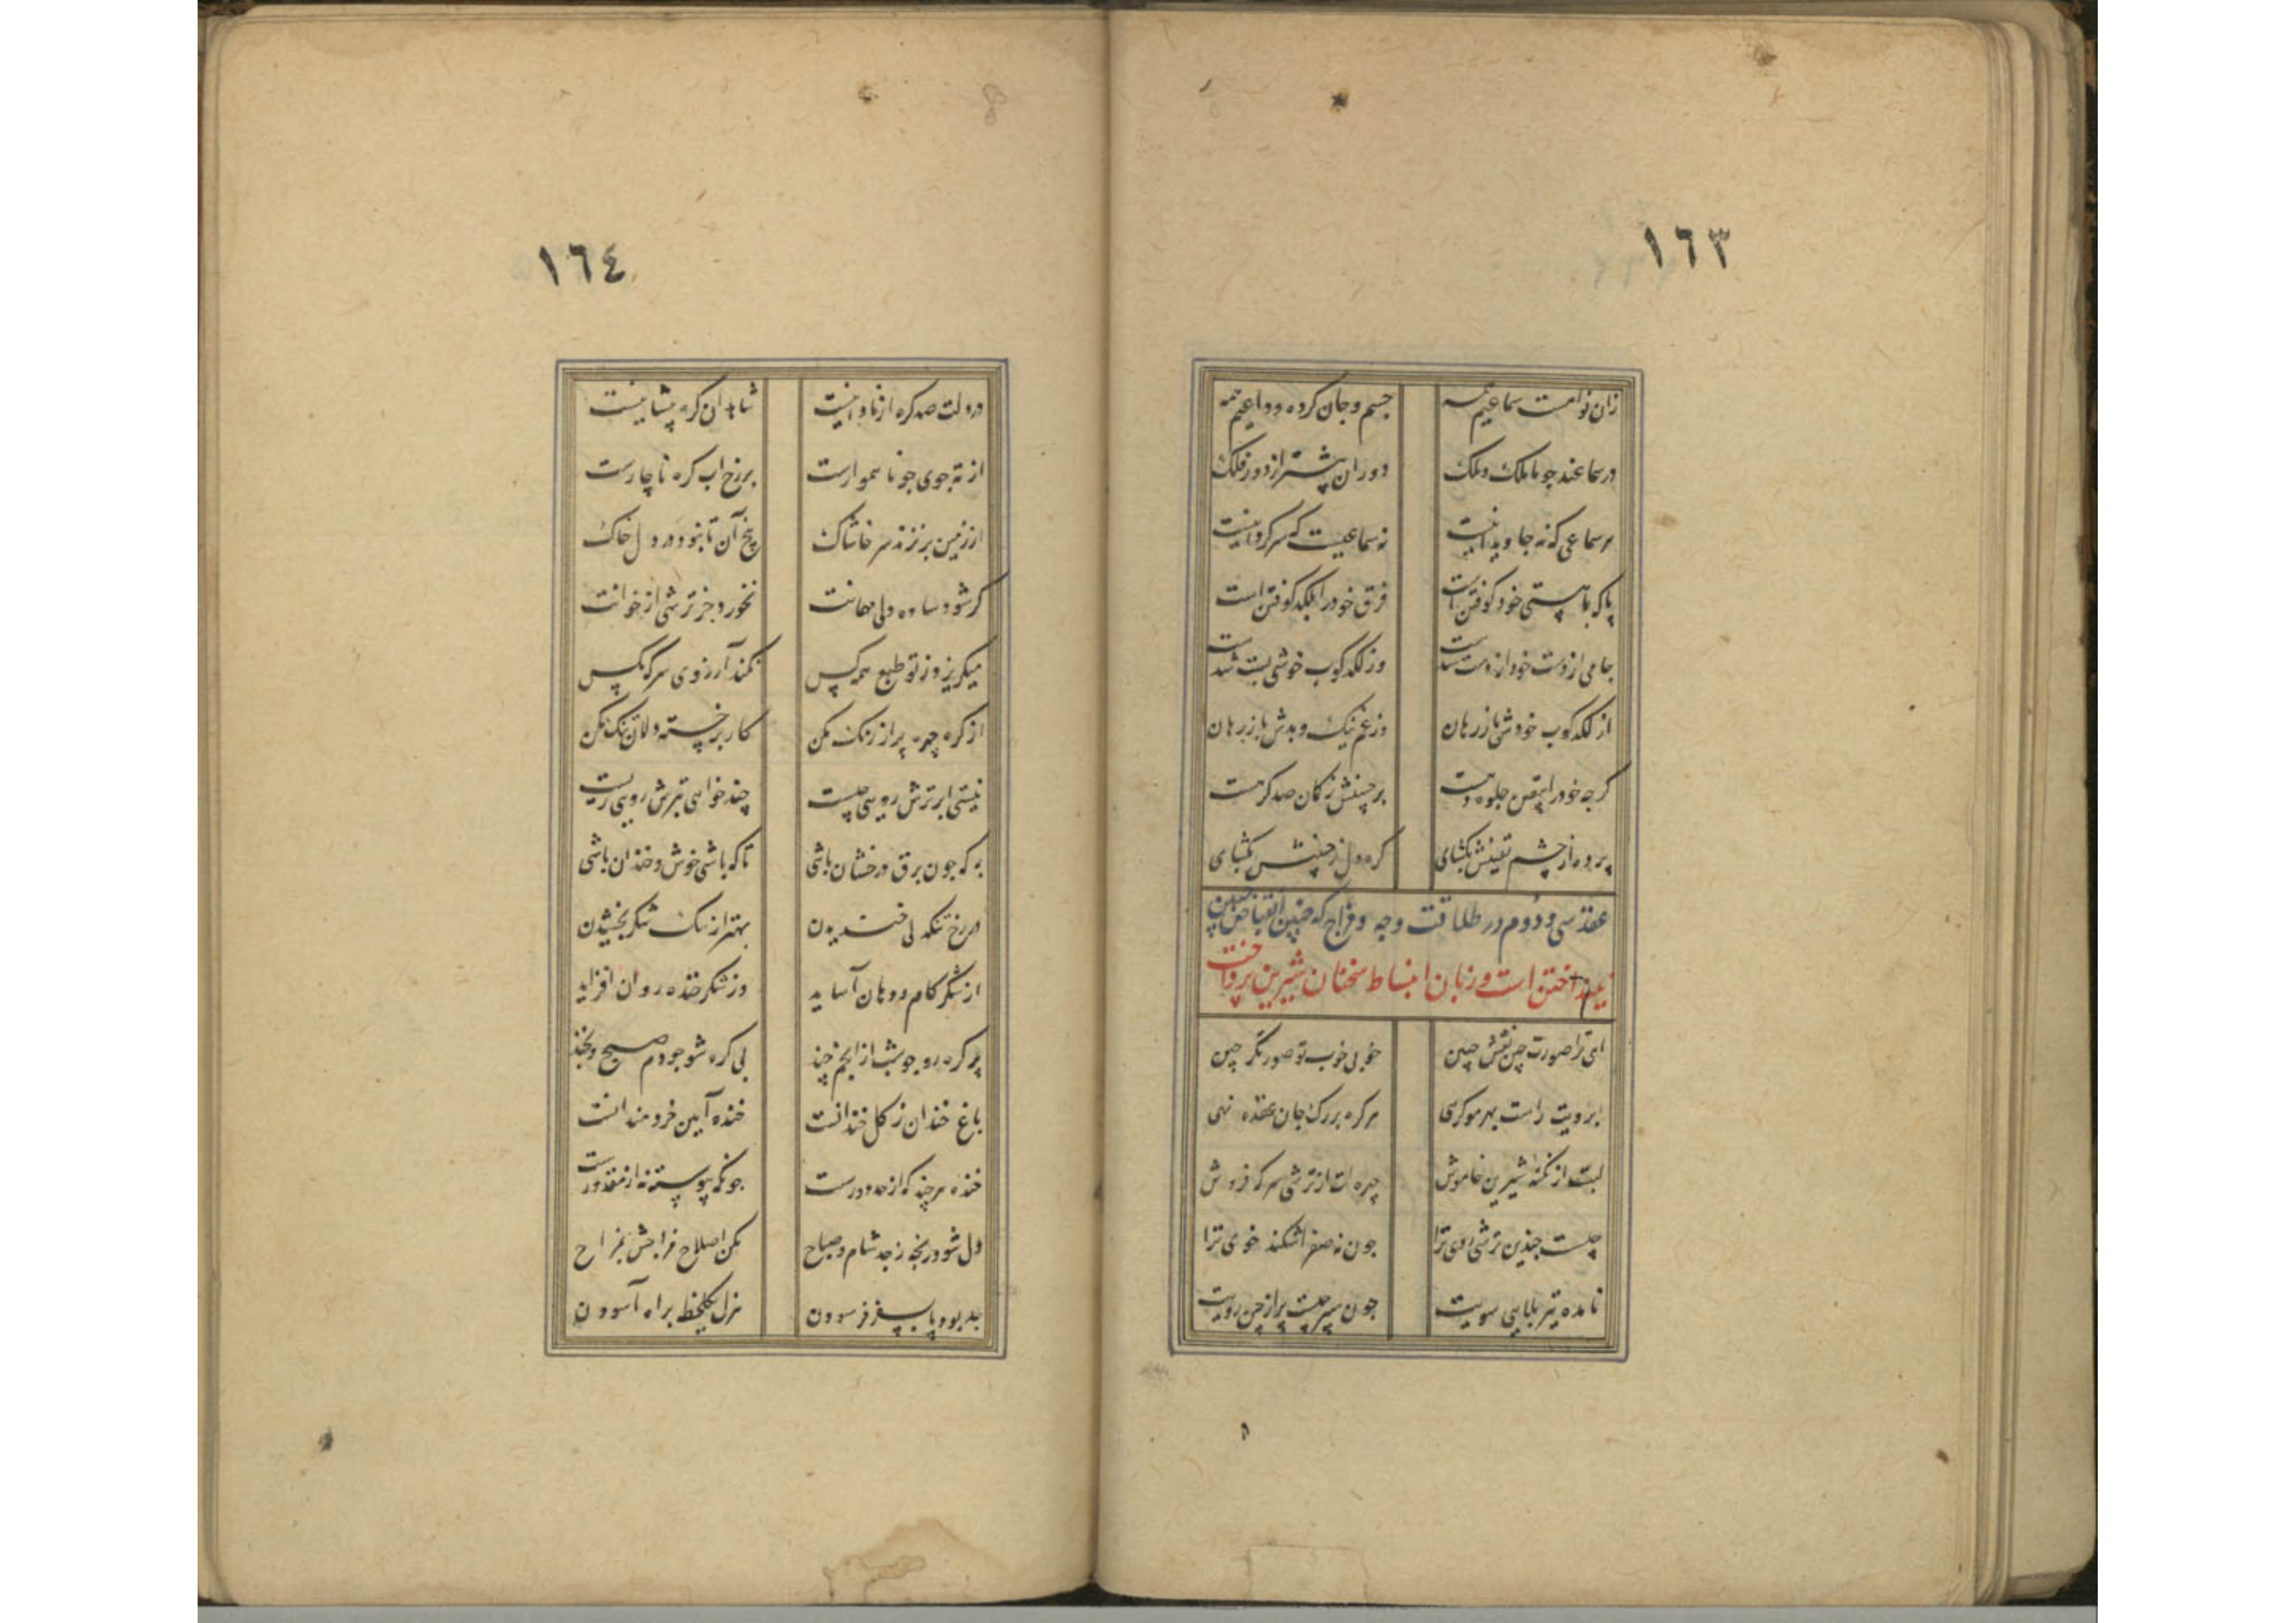 ١٦٣
زان نوا مست سماعیم همه جسم و جان کرده وداعیم همه
در سماعند چو ما ملک و ملک دوران پیشتر از دور فلک
هر سماعی که نه جاویدانیست نه سماعیست که سرگردانیست
پا که با هستی خود کوفتن است فرق خود را بلکد کوفتن است
جامی از دست خود از دست شدست وز لکدکوب خوشی پست شدست
از لکدکوب خودش بازرهان وز غم نیک و بدش بازرهان
کرچه خود را بیقین جلوه دهست بر جبینش ز کمان صد کرهست
پرده از چشم یقینش بکشای کره دل ز جبینش بکشای
عقد سی و دوم در طلاقت وجه و مزاح که چین انقباض از جبین
بینداختن است و زبان انبساط سخنان شیرین پرداختن
ای ترا صورت چین نقش جبین خوبی خوب تو صورتکر چین
ابرویت راست بهر مو کرهی هر کره بر رک جان عقده نهی
لبت از نکتهٔ شیرین خاموش چهره‌ات از ترشی سرکه فروش
چیست چندین ترشی روی ترا چون نه صفرا شکند خوی ترا
نامده تیر بلایی سویت چون سپر چیست پر از چین رویت
١٦٤
در دلت صد کره از نادانیست شاهد آن کره پیشانیست
از ته جوی چو ناهموارست بر رخ اب کره ناچارست
از زمین بر نزند سر خاشاک بیخ آن تا نبود در دل خاک
کر شود ساده دلی مهمانت نخورد جز ترشی از خوانت
میکریزد ز تو طبع همه کس نکند آرزوی سرکه مکس
از کره چهره پر از زنک مکن کار بر خسته دلان تنک مکن
نیستی ابر ترش رویی چیست چند خواهی بترش رویی زیست
به که چون برق درخشان باشی تا که باشی خوش و خندان باشی
در رخ تنکدلی خندیدن بهتر از تنک شکر بخشیدن
از شکر کام و دهان آساید وز شکر خنده روان افزاید
پر کره رو چو شب از انجم چند بی کره شو چو دم صبح و بخند
باغ خندان ز کل خندانست خنده آیین خردمندانست
خنده هر چند که از جد دورست جد پیوسته نه از مقدورست
دل شود رنجه ز جد شام و صباح مکن اصلاح مزاجش بمزاح
جد بود پا بسفر فرسودن هزل یک لحظه براه آسودن